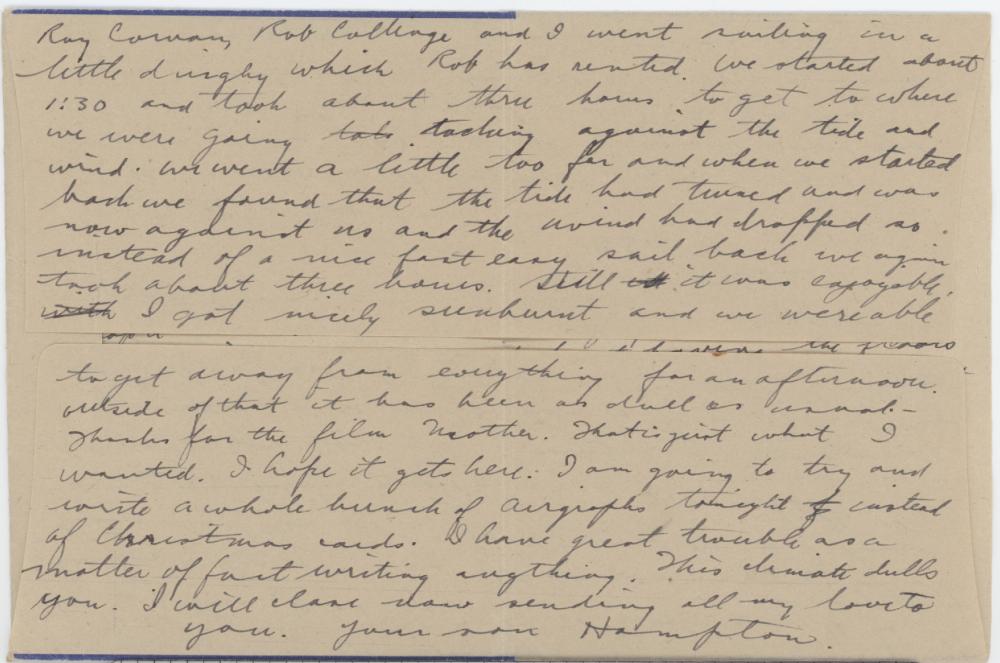 Ray Cowan, Rob Colllnge and I went sailing in a
little dinghy which Rob has rented. We started about
1:30 and took about three hours to get to where
we were going tacking against the tide and
wind. We went a little too far and when we started
back we found that the tide had turned and was
now against us and the wind had dropped so
instead of a nice fast easy sail back we again
took about three hours. Still it was enjoyable,
I got nicely sunburnt and we were able
to get away from everything for an afternoon.
Outside of that it has been as dull as usual.-
Thanks for the film Mother. That is just what I
wanted. I hope it gets here. I am going to try and
write a whole bunch of airgraphs tonight instead
of Christmas cards. I have great trouble as a
matter of fact writing anything. This climate dulls
you. I will close now sending all my love to
you. Your son Hampton.